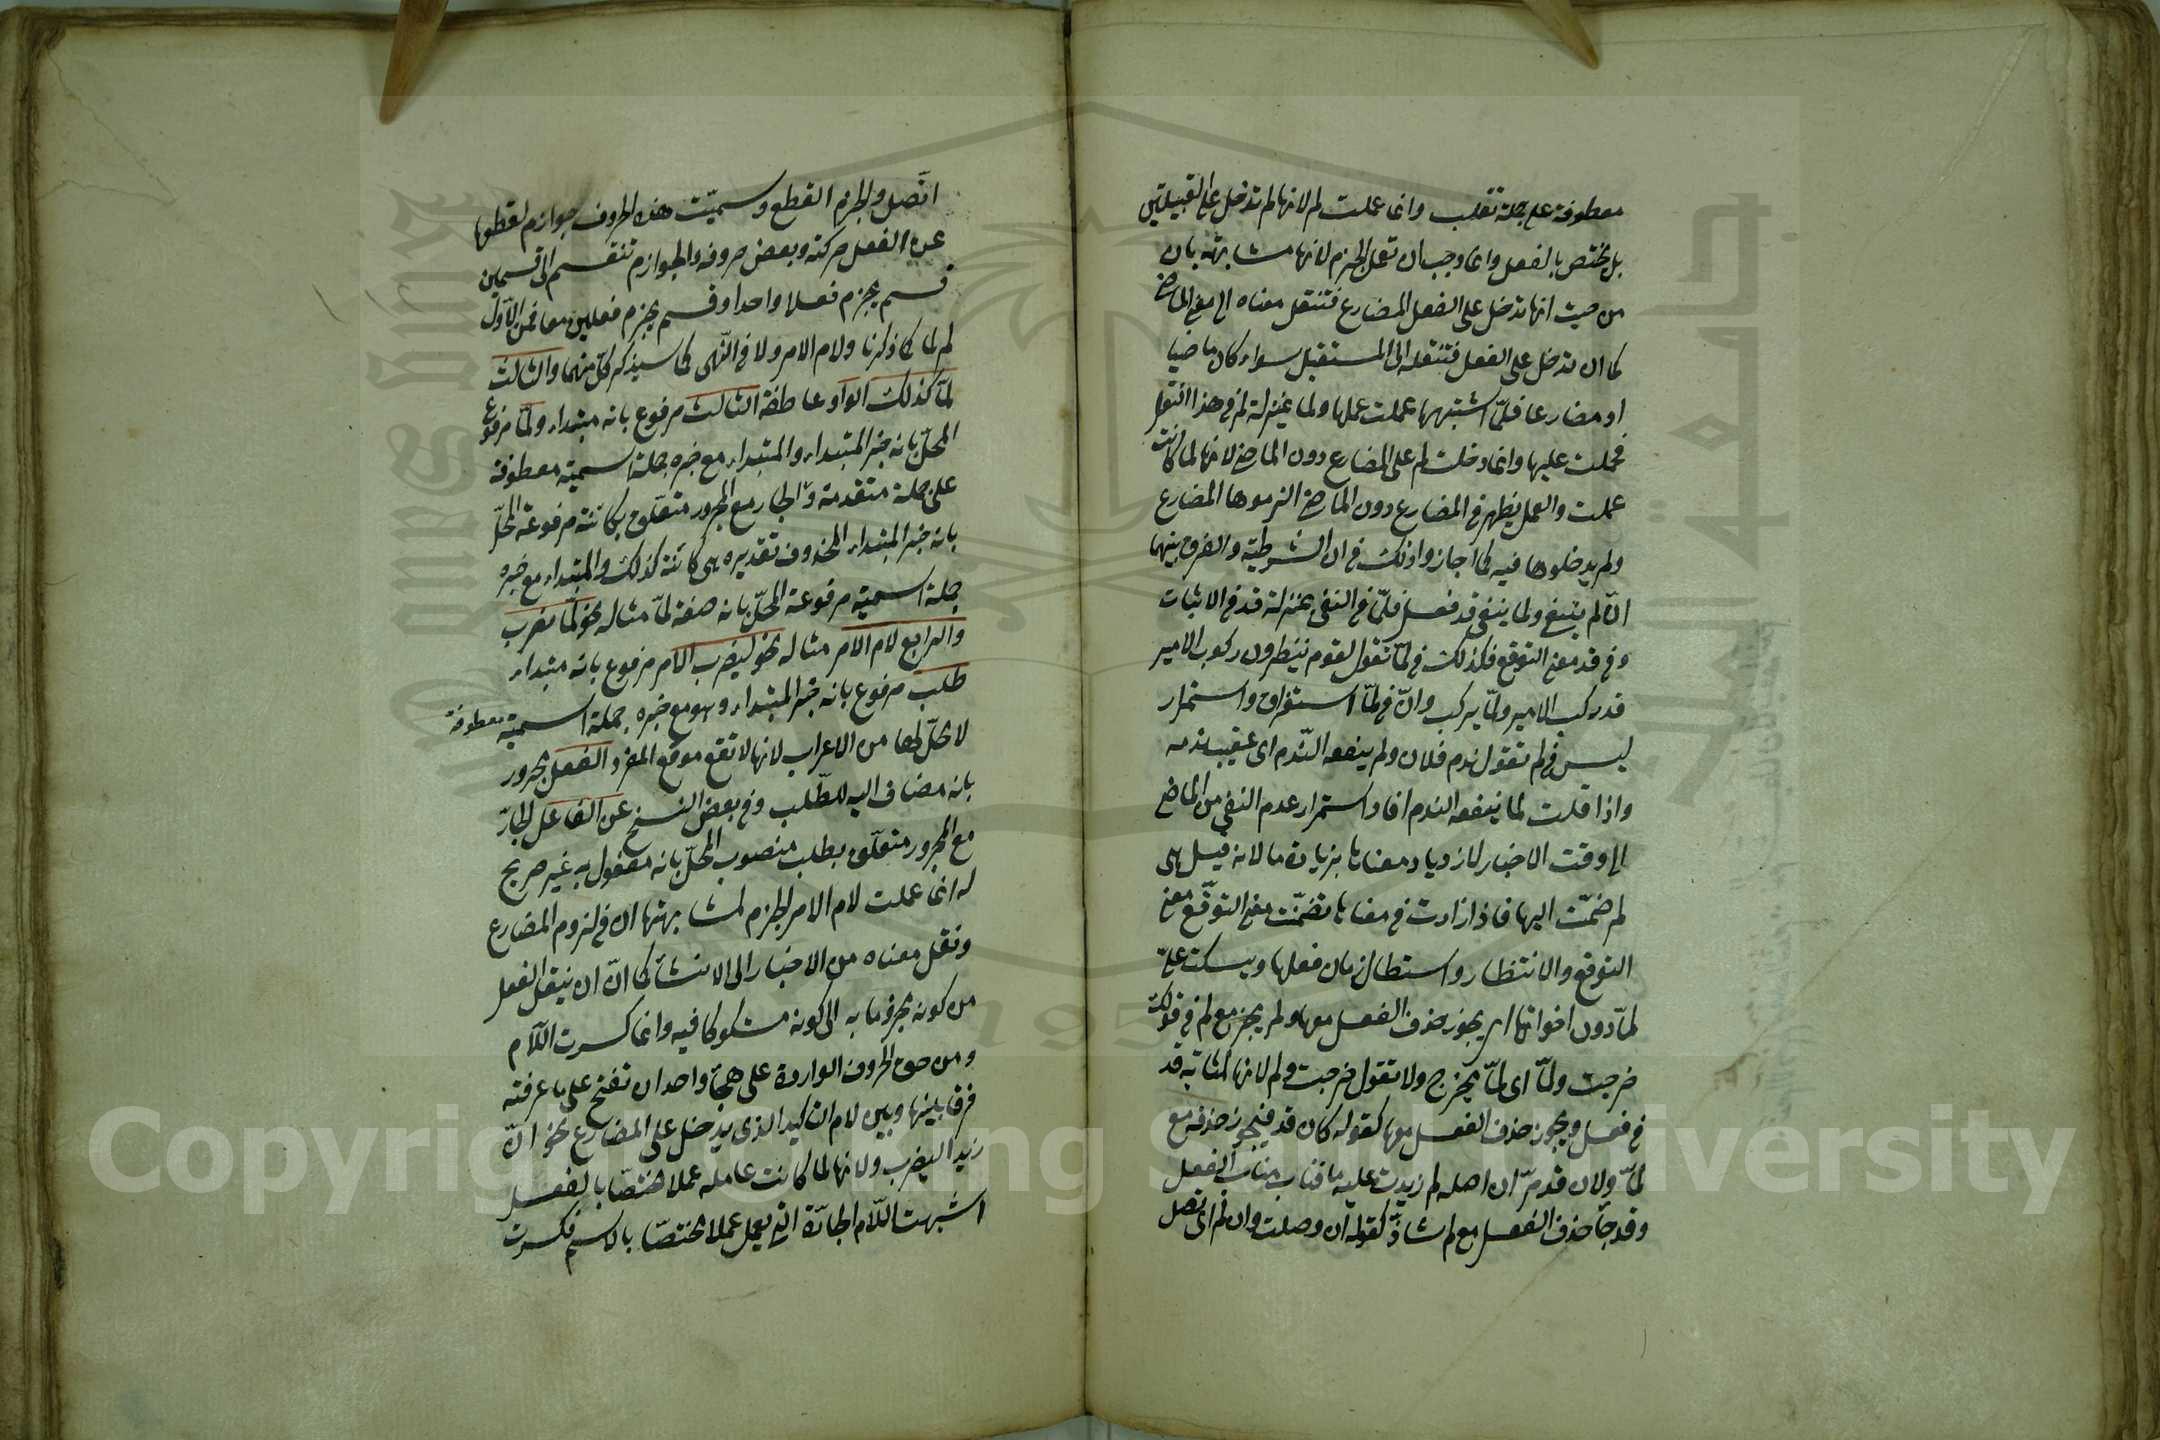 معطوفة على جملة تقلب وانما عملت لم لانها لم تدخل على القبيلتين
بل تختص بالفعل وانما وجب ان تعمل الجزم لانها مشابهته بان
من حيث انها تدخل على الفعل المضارع فتنقل معناه الى معنى الماضى
كما ان تدخل على الفعل فتنقله الى المستقبل سواء كان ماضيا
او مضارعا فلمّا اشتبهها عملت عملها ولما بمنزلة لم فى هذا النقل
فحملت عليها وانما دخلت لم على المضارع دون الماضى لانها لما كانت
عملت والعمل يظهر فى المضارع دون الماضى الزموها المضارع
ولم يدخلوها فيه كما اجازوا ذلك فى ان الشرطية والفرق بينهما
انّ لم ينفى ولما ينفى قد فعل فلمّا فى النفى بمنزلة قد فى الاثبات
وفى قد معنى التوقع فكذلك فى لمّا تقول لقوم ينتظرون ركوب الامير
قد ركب الامير ولمّا يركب وانّ فى لمّا استغراق واستمرار
ليس فى لم تقول ندم فلان ولم ينفعه النّدم اى عقيب ندمه
واذا قلت لما ينفعه الندم افاد استمرار عدم النفى من الماضى
الى وقت الاخبار لازدياد معناها بزيادة ما لانه قيل هى
لم ضمّت اليها فاذا زادت فى معناها تضمّنت معنى التوقّع معنى
التوقع والانتظار واستطال زمان فعلها ويسكت على
لمّا دون اخواتها اى يجوز حذف الفعل معها ولم يجز مع لم فى قولك
خرجت ولمّا اى لمّا يخرج ولا تقول خرجت ولم لانها لمشابه قد
فى فعل ويجوز حذف الفعل معها كقوله كان قد فيجوز حذفه مع
لمّا ولان قد مرّ ان اصله لم زيدت عليه ما فناب مناب الفعل
وقد جاء حذف الفعل مع لم شاذّ كقوله ان وصلت وان لم اى تصل
اتّصل والجزم القطع وسميّت هذه الحروف جوازم لقطعها
عن الفعل حركته وبعض حروفه والجوازم تنقسم الى قسمين
قسم يجزم فعلا واحدا وقسم يجزم فعلين معا فمن الاوّل
لم لما كما ذكرنا ولام الامر ولا فى النّهى كما سيذكر كلّ منهما والثالث
لمّا كذلك الواو عاطفة الثالث مرفوع بانه مبتداء ولمّا مرفوع
المحلّ بانه خبر المبتداء والمبتداء مع خبره جملة اسمية معطوفة
على جملة متقدمة والجار مع المجرور متعلّق بكائنة مرفوعة المحلّ
بانه خبر المبتداء المحذوف تقديره هى كائنة كذلك والمبتداء مع خبره
جملة اسمية مرفوعة المحلّ بانه صفة لمّا مثاله نحو لمّا يضرب
والرابع لام الامر مثاله نحو ليضرب الامر مرفوع بانه مبتداء
طلب مرفوع بانه خبر المبتداء وهو مع خبره جملة اسمية معطوفة
لا محلّ لها من الاعراب لانها لا تقع موقع المفرد الفعل مجرور
بانه مضاف اليه للطّلب وفى بعض النسخ عن الفاعل الجارّ
مع المجرور متعلّق بطلب منصوب المحلّ بانه مفعول به غير صريح
له انما عملت لام الامر الجزم لمشابهتها ان فى لزوم المضارع
ونقل معناه من الاخبار الى الانشاء كما انّ ان ينقل الفعل
من كونه مجزوما به الى كونه مشكوكا فيه وانما كسرت اللّام
ومن حق الحروف الواردة على هجاء واحد ان تفتح على ما عرفته
فرقا بينها وبين لام التاكيد الذى يدخل على المضارع نحو انّ
زيدا ليضرب ولانها لما كانت عاملة عملا مختصّا بالفعل
اشبهت اللّام الجارّة التى يعمل عملا مختصّا بالاسم فكسرت